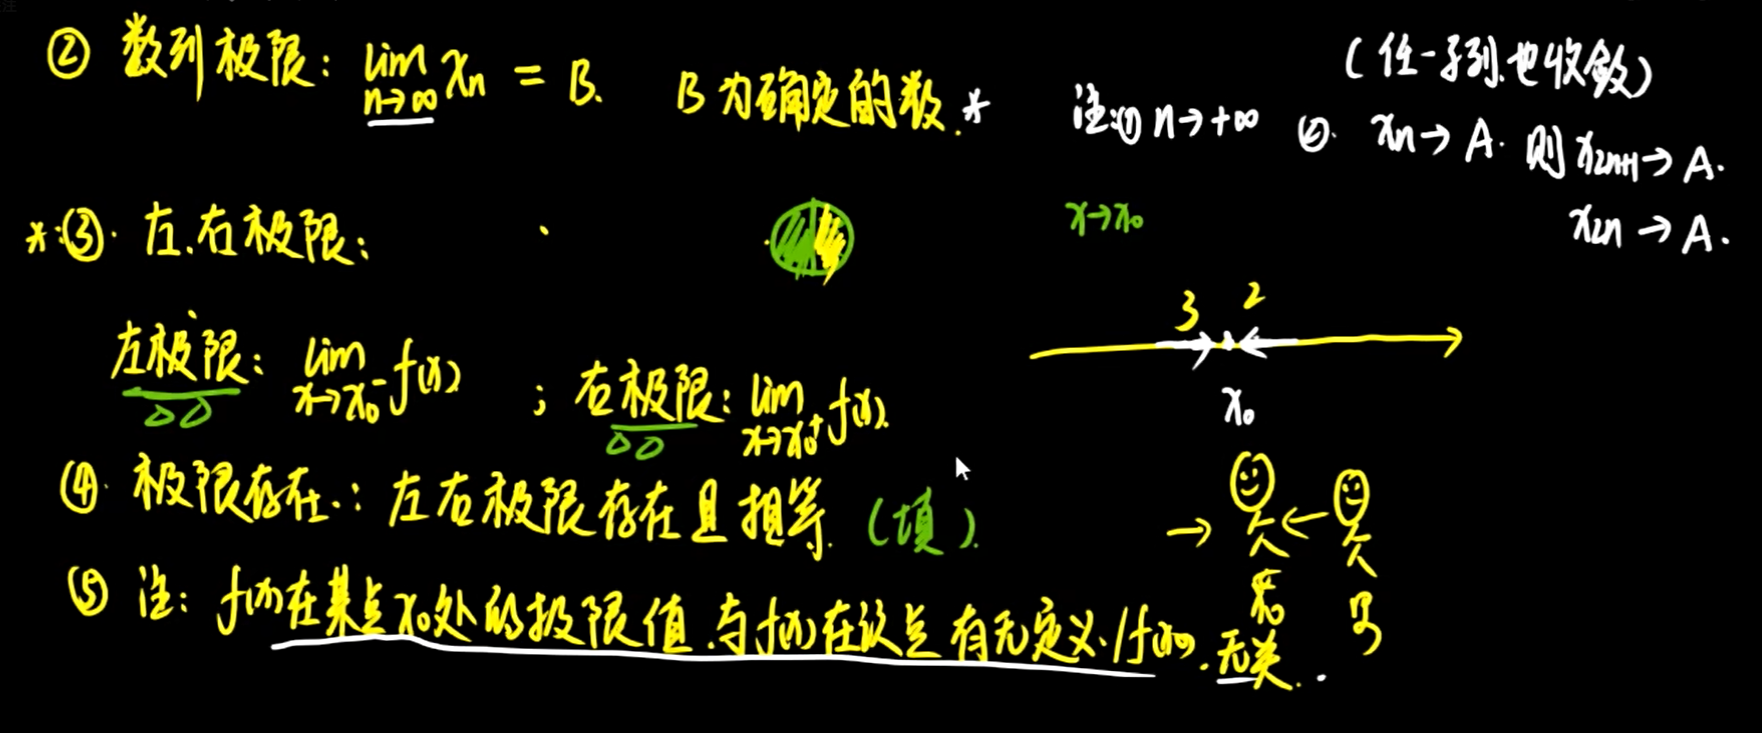 ② 数列极限: lim n→∞ xn = B. B为确定的数.* 注:① n→+∞ ②. xn→A. 则 x2n+1→A.
(任一子列也收敛)
x2n→A.
*:③. 左.右极限: x→x0
3 2
x0
左极限: lim x→x0⁻ f(x) ; 右极限: lim x→x0⁺ f(x).
④. 极限存在.: 左右极限存在且相等. (填).
⑤ 注: f(x)在某点x0处的极限值.与f(x)在该点有无定义./f(x0).无关..